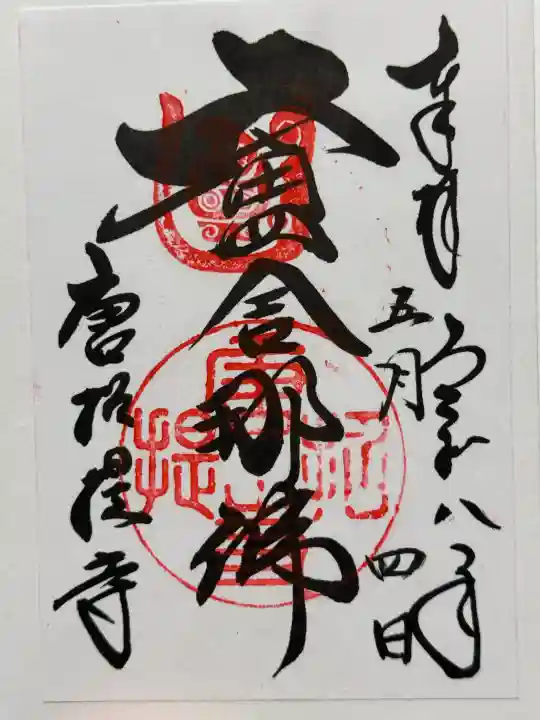 奉拝
八年
五月四日
盧舎那佛
唐招提寺
唐招提寺